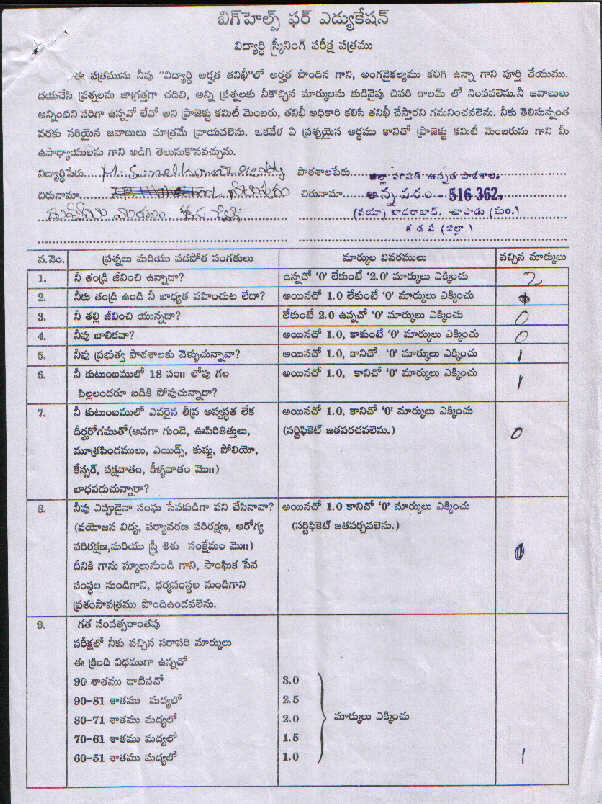 బిగ్‌హెల్ప్ ఫర్ ఎడ్యుకేషన్
విద్యార్థి స్క్రీనింగ్ పరీక్ష పత్రము
ఈ పత్రమును నీవు "విద్యార్థి అర్హత తనిఖీ"లో అర్హత పొందిన గాని, అంగవైకల్యము కలిగి ఉన్నా గాని పూర్తి చేయుము.
దయచేసి ప్రశ్నలను జాగ్రత్తగా చదివి, అన్ని ప్రశ్నలకు నీకొచ్చిన మార్కులను కుడివైపు చివరి కాలమ్ లో నింపవలెను. నీ జవాబులు
అన్నింటిని సరిగా ఉన్నవో లేవో అని ప్రాజెక్టు కమిటీ మెంబరు, తనిఖీ అధికారి కలిసి తనిఖీ చేస్తారని గమనించవలెను. నీకు తెలిసున్నంత
వరకు సరియైన జవాబులు మాత్రమే వ్రాయవలెను. ఒకవేళ ఏ ప్రశ్నయైన అర్థము కానిచో ప్రాజెక్టు కమిటీ మెంబరును గాని మీ
ఉపాధ్యాయులను గాని అడిగి తెలుసుకొనవచ్చును.
విద్యార్థిపేరు పాఠశాలపేరు జిల్లా పరిషత్ ఉన్నత పాఠశాల
చిరునామా చిరునామా అన్నవరం- 516 362.
(వయా) చాపాడు (మం.)
కడప (జిల్లా)
వ.నెం. ప్రశ్నలు మరియు పడవోత సంగతులు మార్కుల వివరములు వచ్చిన మార్కులు
1. నీ తండ్రి జీవించి ఉన్నాడా? ఉన్నచో '0' లేకుంటే '2.0' మార్కులు ఎక్కించు 2
2. నీకు తండ్రి ఉండి నీ బాధ్యత వహించుట లేదా? అయినచో 1.0 లేకుంటే '0' మార్కులు ఎక్కించు
3. నీ తల్లి జీవించి యున్నదా? లేకుంటే 2.0 ఉన్నచో '0' మార్కులు ఎక్కించు 0
4. నీవు బాలికవా? అయినచో 1.0, కాకుంటే '0' మార్కులు ఎక్కించు 0
5. నీవు ప్రభుత్వ పాఠశాలకు వెళ్ళుచున్నావా? అయినచో 1.0, కానిచో '0' మార్కులు ఎక్కించు 1
6. నీ కుటుంబములో 18 సం॥ లోపు గల అయినచో 1.0, కానిచో '0' మార్కులు ఎక్కించు 1
పిల్లలందరూ బడికి పోవుచున్నారా?
7. నీ కుటుంబములో ఎవరైన తీవ్ర అస్వస్థత లేక అయినచో 1.0, కానిచో '0' మార్కులు ఎక్కించు 0
దీర్ఘరోగముతో(అనగా గుండె, ఊపిరితిత్తులు, (సర్టిఫికెట్ జతపరచవలెను.)
మూత్రపిండములు, ఎయిడ్స్, కుష్టు, పోలియో,
కేన్సర్, పక్షవాతం, కీళ్ళవాతం మొ॥)
బాధపడుచున్నారా?
8. నీవు ఎప్పుడైనా సంఘ సేవకుడిగా పని చేసినావా? అయినచో 1.0 కానిచో '0' మార్కులు ఎక్కించు 0
(వయోజన విద్య, పర్యావరణ పరిరక్షణ, ఆరోగ్య (సర్టిఫికెట్ జతపర్చవలెను.)
పరిరక్షణ,మరియు స్త్రీ శిశు సంక్షేమం మొ॥)
దీనికి గాను స్కూలునుండి గాని, సాంఘిక సేవ
సంస్థల నుండిగాని, ధర్మసంస్థల నుండిగాని
ప్రశంసాపత్రము పొందిఉండవలెను.
9. గత సంవత్సరాంతపు
పరీక్షలో నీకు వచ్చిన సరాసరి మార్కులు
ఈ క్రింది విధముగా ఉన్నచో
90 శాతము దాటినచో 3.0
90-81 శాతము మధ్యలో 2.5
80-71 శాతము మధ్యలో 2.0 మార్కులు ఎక్కించు
70-61 శాతము మధ్యలో 1.5
60-51 శాతము మధ్యలో 1.0 1